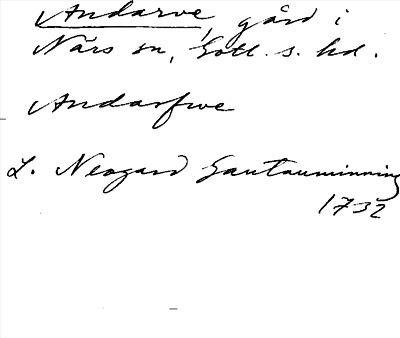 Andarve, gård i
Närs sn, Gotl. s. hd.
Andarfwe
L. Neogard Gautauminning
1732